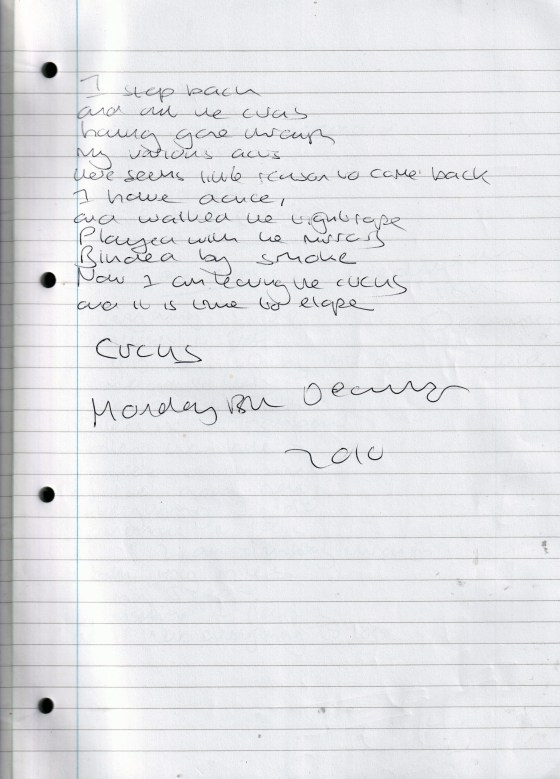 I step back
and the circus
having gone through
My various acts
there seems little reason to come back
I have
and walked the tightrope
Played with the mirrors
Blinded by smoke
Now I am leaving the circus
and it is time to elope
Circus
Monday 13th December
2010